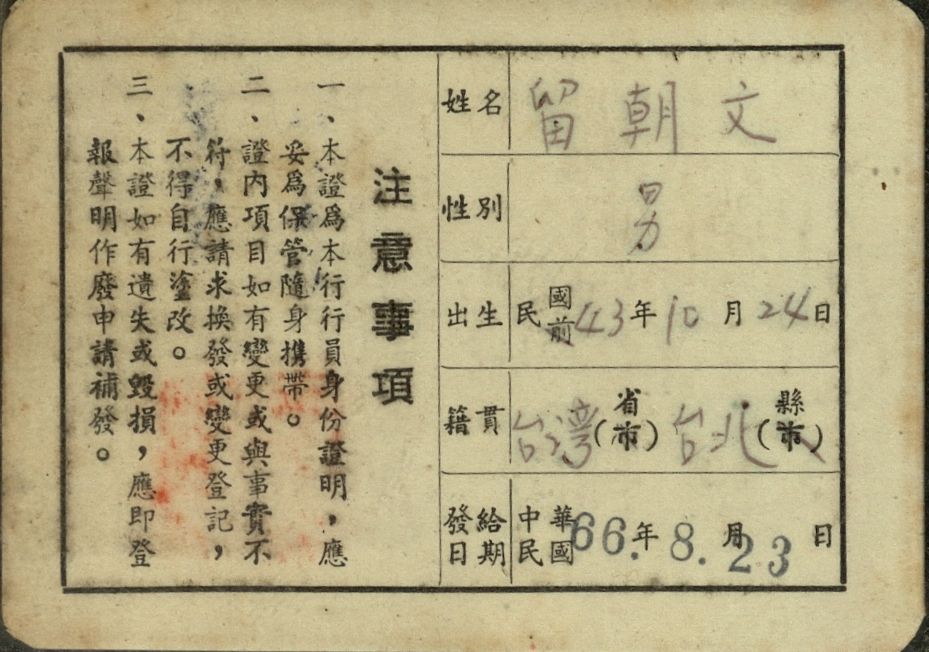 注意事項
一、本證爲本行行員身份證明，應
妥爲保管隨身携帶。
二、證內項目如有變更或與事實不
符，應請求換發或變更登記，
不得自行塗改。
三、本證如有遺失或毀損，應即登
報聲明作廢申請補發。
姓名 留朝文
性別 男
出生 民國前43年10月24日
籍貫 台灣省(市) 台北縣(市)
發給日期 中華民國66.年8.月23日